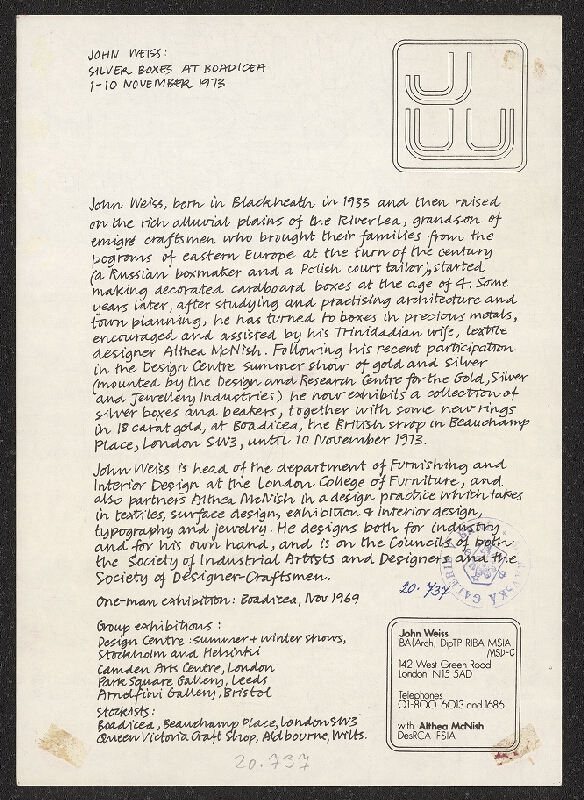 JOHN WEISS:
SILVER BOXES AT BOADICEA
1-10 NOVEMBER 1973
John Weiss, born in Blackheath in 1933 and then raised
on the rich alluvial plains of the River Lea, grandson of
emigré craftsmen who brought their families from the
pogroms of eastern Europe at the turn of the century
(a Russian boxmaker and a Polish court tailor), started
making decorated cardboard boxes at the age of 4. Some
years later, after studying and practising architecture and
town planning, he has turned to boxes in precious metals,
encouraged and assisted by his Trinidadian wife, textile
designer Althea McNish. Following his recent participation
in the Design Centre summer show of gold and silver
(mounted by the Design and Research Centre for the Gold, Silver
and Jewellery Industries) he now exhibits a collection of
silver boxes and beakers, together with some new rings
in 18 carat gold, at Boadicea, the British shop in Beauchamp
Place, London SW3, until 10 November 1973.
John Weiss is head of the department of Furnishing and
Interior Design at the London College of Furniture, and
also partners Althea McNish in a design practice which takes
in textiles, surface design, exhibition & interior design,
typography and jewelry. He designs both for industry
and for his own hand, and is on the Councils of both
the Society of Industrial Artists and Designers and the
Society of Designer-Craftsmen.
20.737
One-man exhibition: Boadicea, Nov 1969
Group exhibitions:
Design Centre: summer + winter shows,
Stockholm and Helsinki
Camden Arts Centre, London
Park Square Gallery, Leeds
Arnolfini Gallery, Bristol
Stockists:
Boadicea, Beauchamp Place, London SW3
Queen Victoria Craft Shop, Aldbourne, Wilts.
John Weiss
BA(Arch, DipTP RIBA MSIA
/MSD-C
142 West Green Road
London N15 5AD
Telephones
01-800 and 1686
with Althea McNish
DesRCA FSIA
20.737